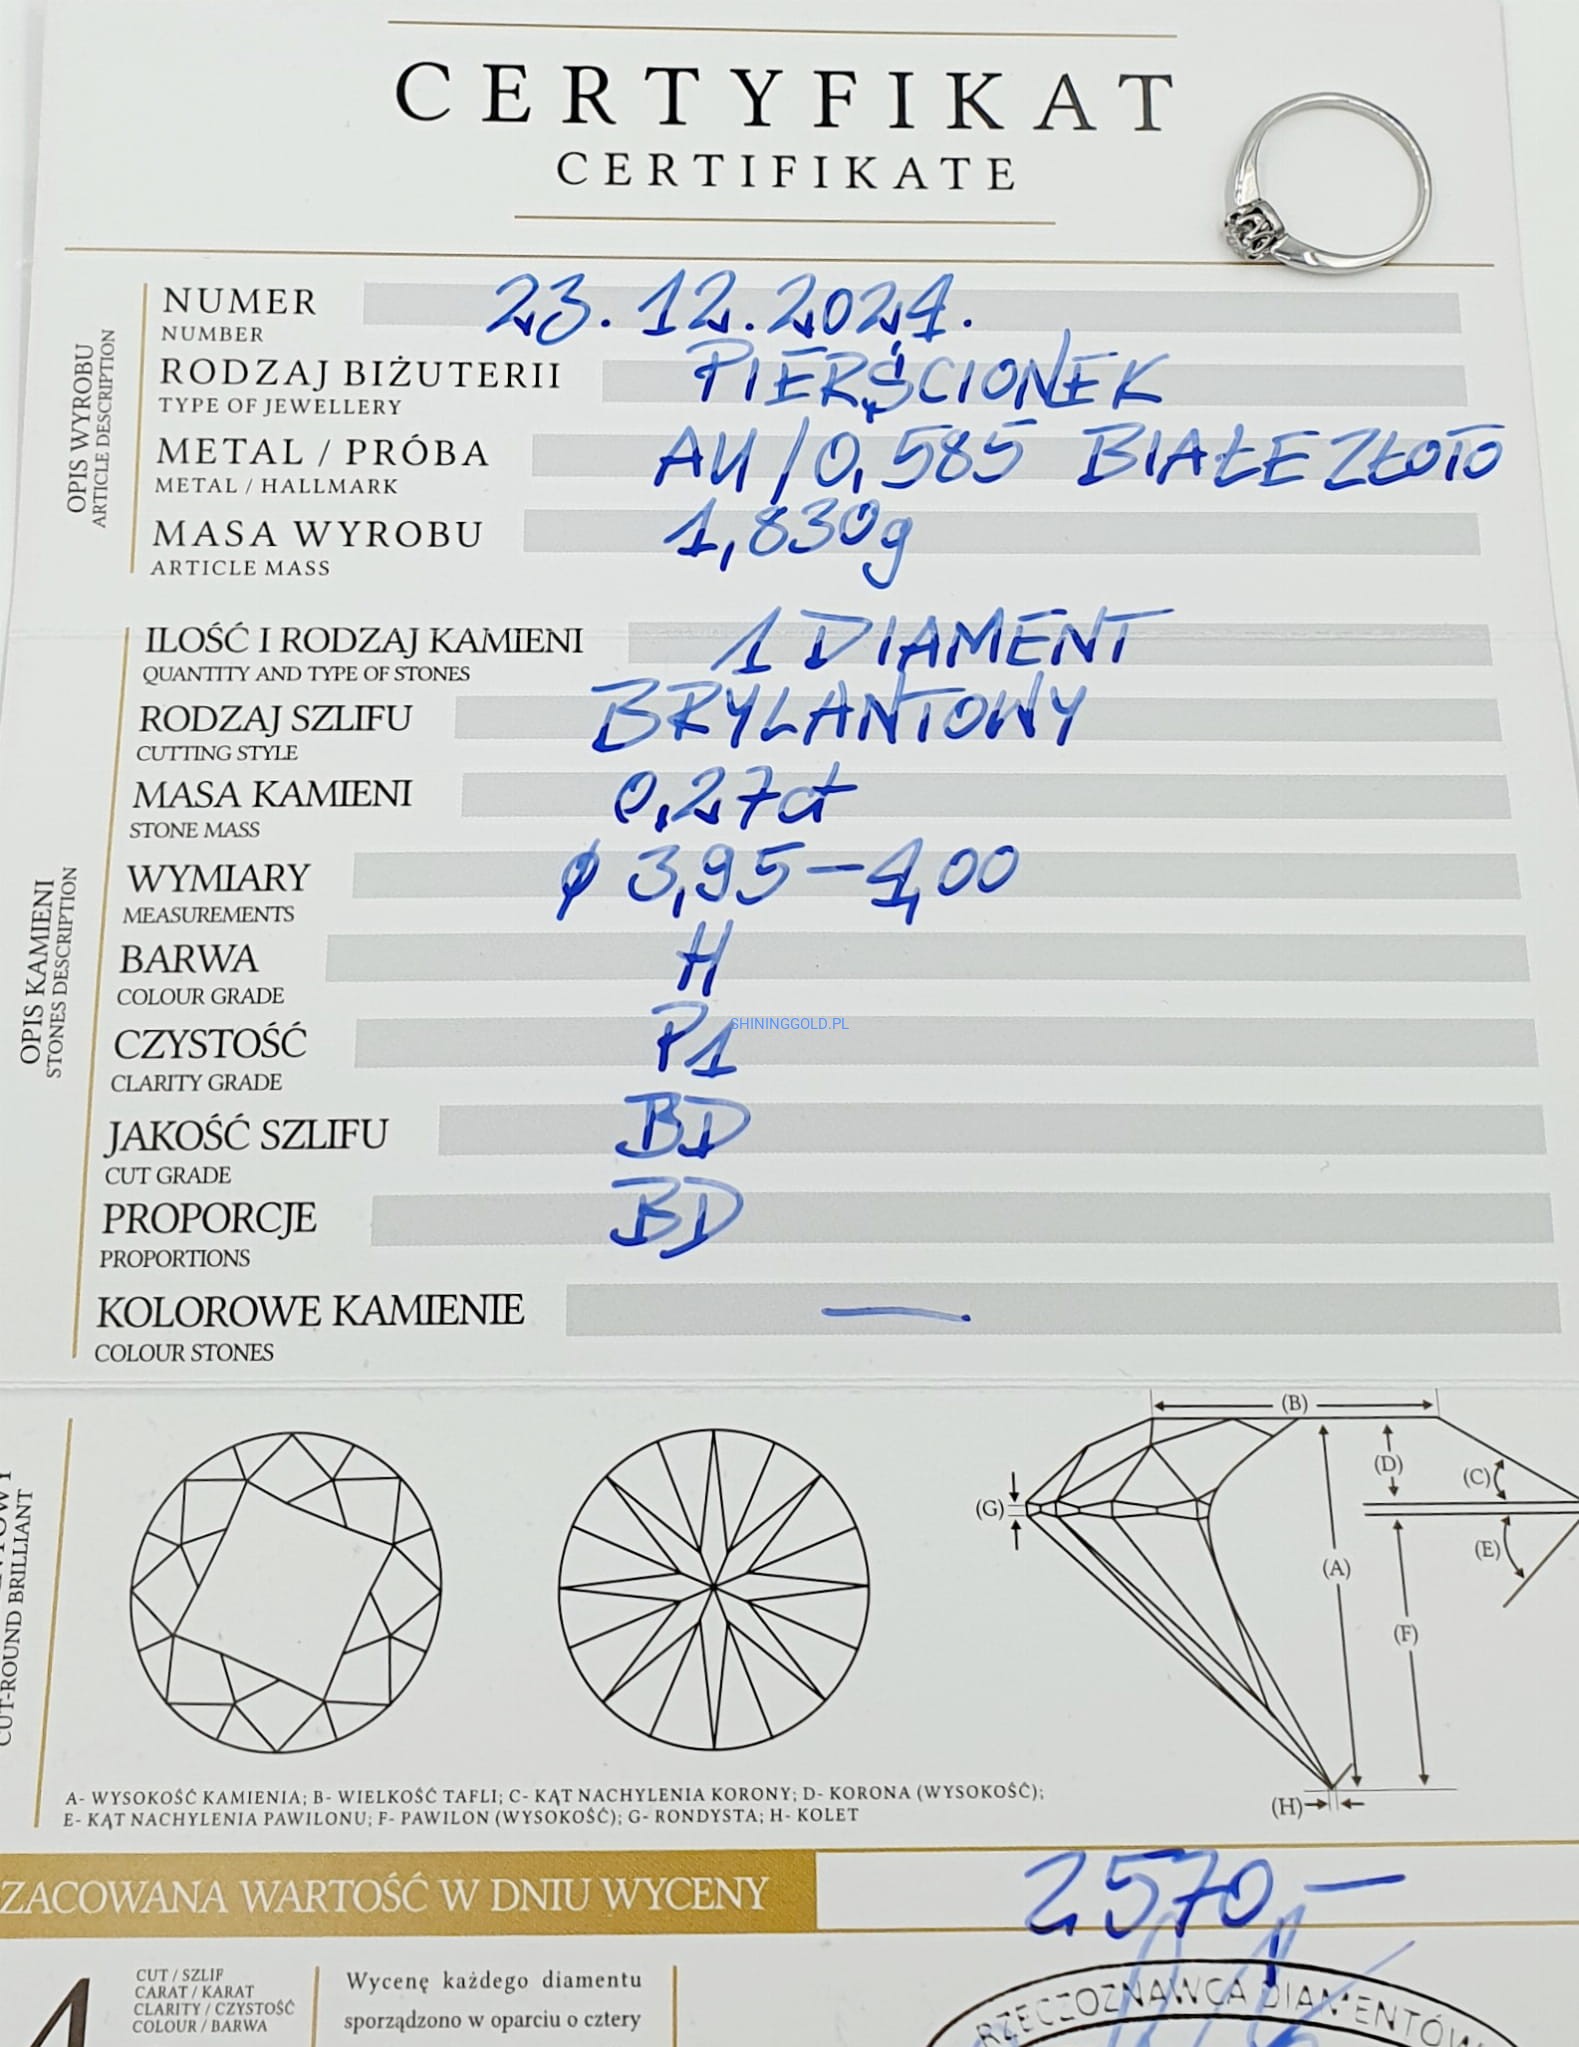 CERTYFIKAT
CERTIFIKATE
OPIS WYROBU
ARTICLE DESCRIPTION
NUMER 23.12.2024.
NUMBER
RODZAJ BIŻUTERII PIERŚCIONEK
TYPE OF JEWELLERY
METAL / PRÓBA AU/0,585 BIAŁE ZŁOTO
METAL / HALLMARK
MASA WYROBU 1,830g
ARTICLE MASS
OPIS KAMIENI
STONES DESCRIPTION
ILOŚĆ I RODZAJ KAMIENI 1 DIAMENT
QUANTITY AND TYPE OF STONES
RODZAJ SZLIFU BRYLANTOWY
CUTTING STYLE
MASA KAMIENI 0,27ct
STONE MASS
WYMIARY ϕ 3,95-4,00
MEASUREMENTS
BARWA H
COLOUR GRADE
CZYSTOŚĆ P1
SHININGGOLD.PL
CLARITY GRADE
JAKOŚĆ SZLIFU BD
CUT GRADE
PROPORCJE BD
PROPORTIONS
KOLOROWE KAMIENIE —
COLOUR STONES
CUT-ROUND BRILLIANT
(B)
(D)
(C)
(G)
(E)
(A)
(F)
(H)
A- WYSOKOŚĆ KAMIENIA; B- WIELKOŚĆ TAFLI; C- KĄT NACHYLENIA KORONY; D- KORONA (WYSOKOŚĆ);
E- KĄT NACHYLENIA PAWILONU; F- PAWILON (WYSOKOŚĆ); G- RONDYSTA; H- KOLET
ZACOWANA WARTOŚĆ W DNIU WYCENY 2570,-
4
CUT / SZLIF
CARAT / KARAT
CLARITY / CZYSTOŚĆ
COLOUR / BARWA
Wycenę każdego diamentu
sporządzono w oparciu o cztery
RZECZOZNAWCA DIAMENTÓW